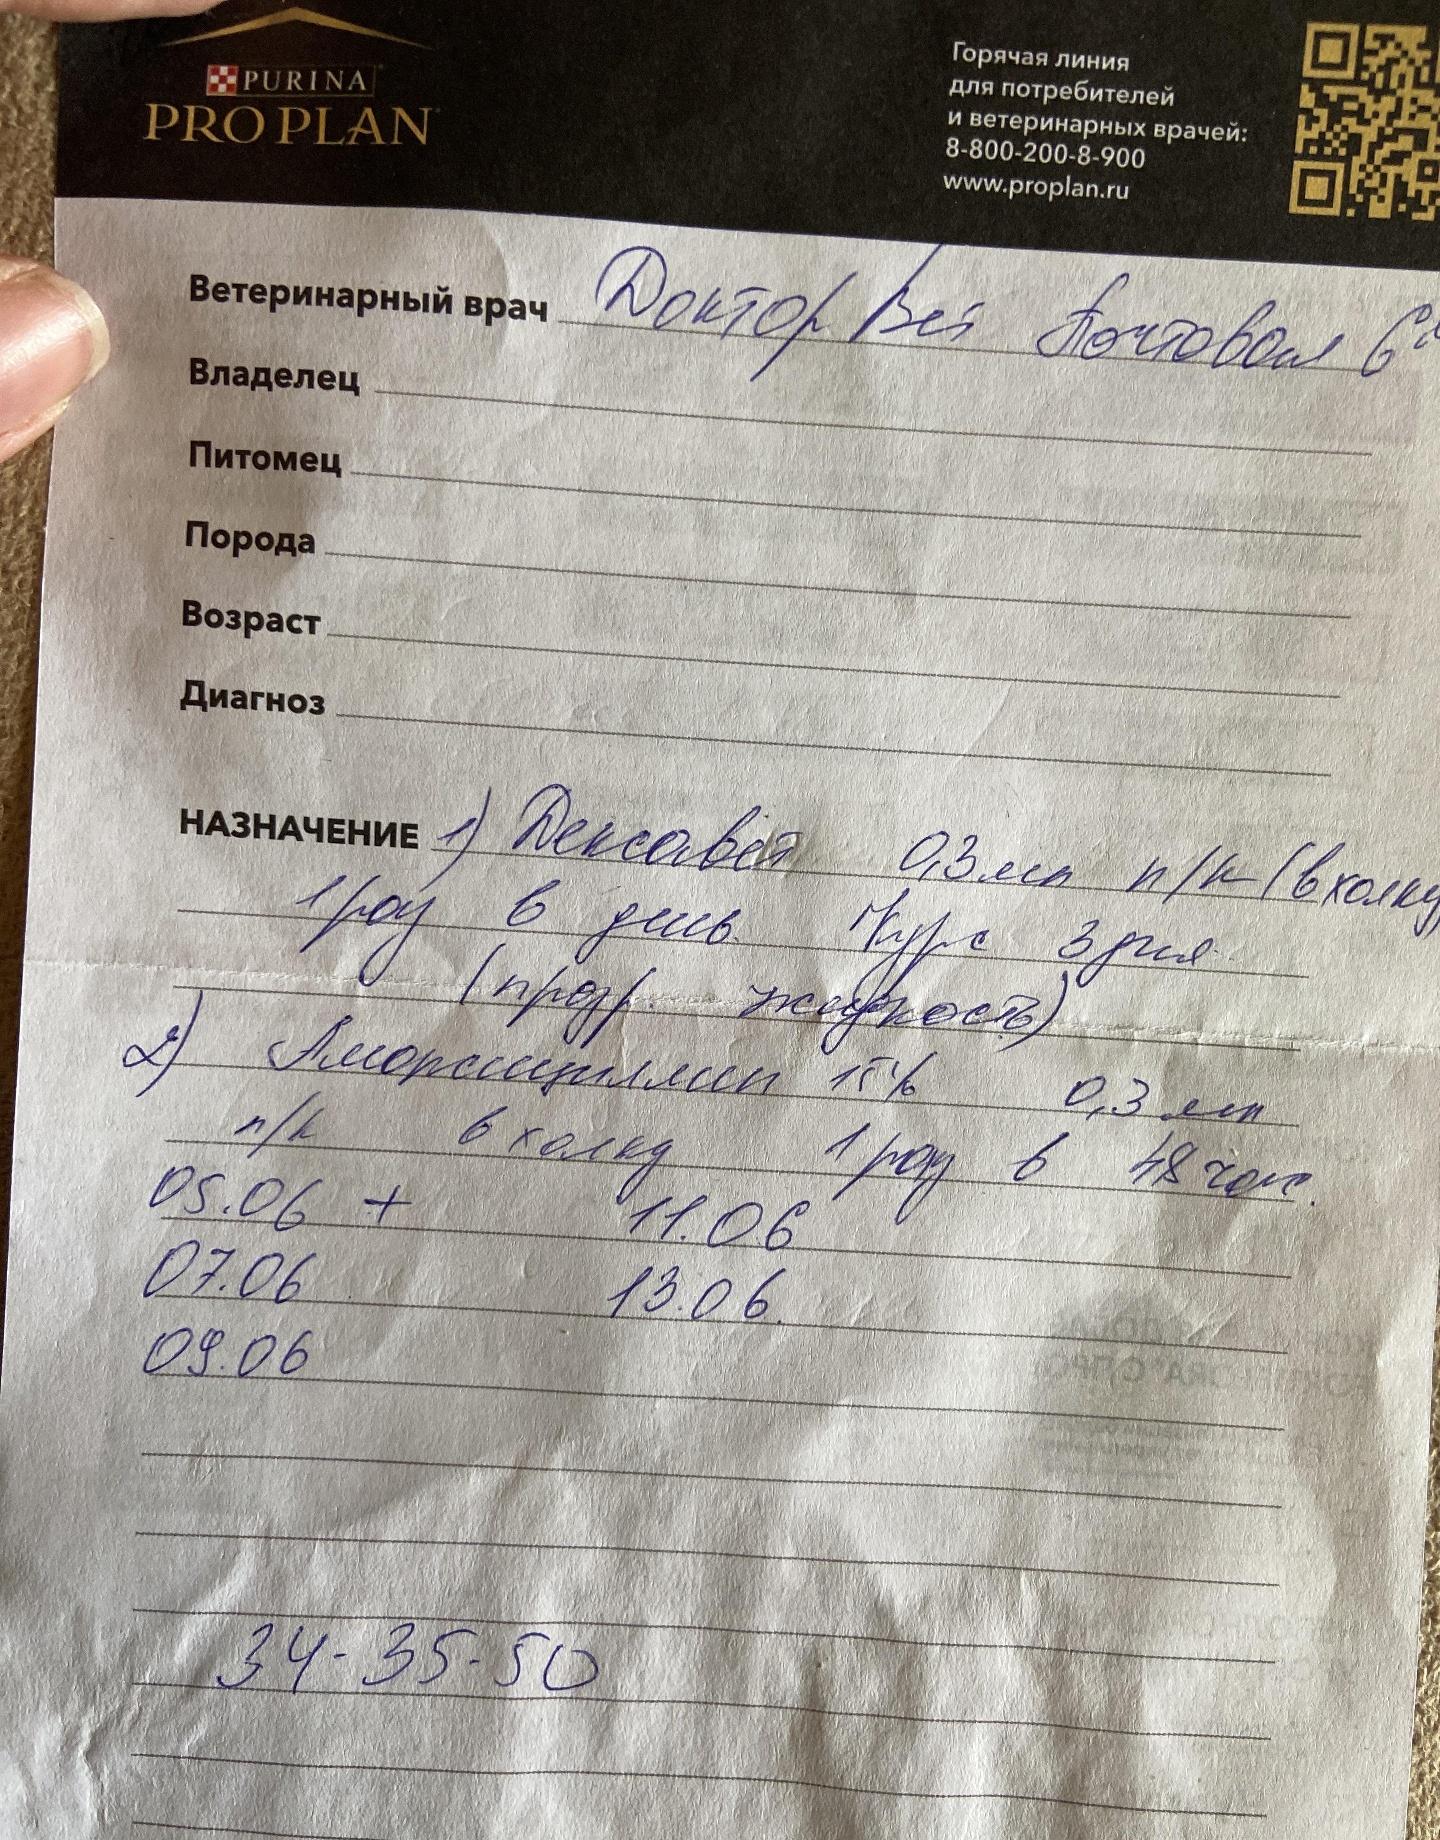 PURINA
PRO PLAN
Горячая линия
для потребителей
и ветеринарных врачей:
8-800-200-8-900
www.proplan.ru
Ветеринарный врач Доктор Вет Почтовая 6
Владелец
Питомец
Порода
Возраст
Диагноз
НАЗНАЧЕНИЕ 1) Дексавет 0,3 мл п/к (в холку
1 раз в день Курс 3 дня
(прозр. жидкость)
2) Амоксициллин 15% 0,3 мл
п/к в холку 1 раз в 48 час.
05.06 + 11.06
07.06 13.06.
09.06
34-35-50